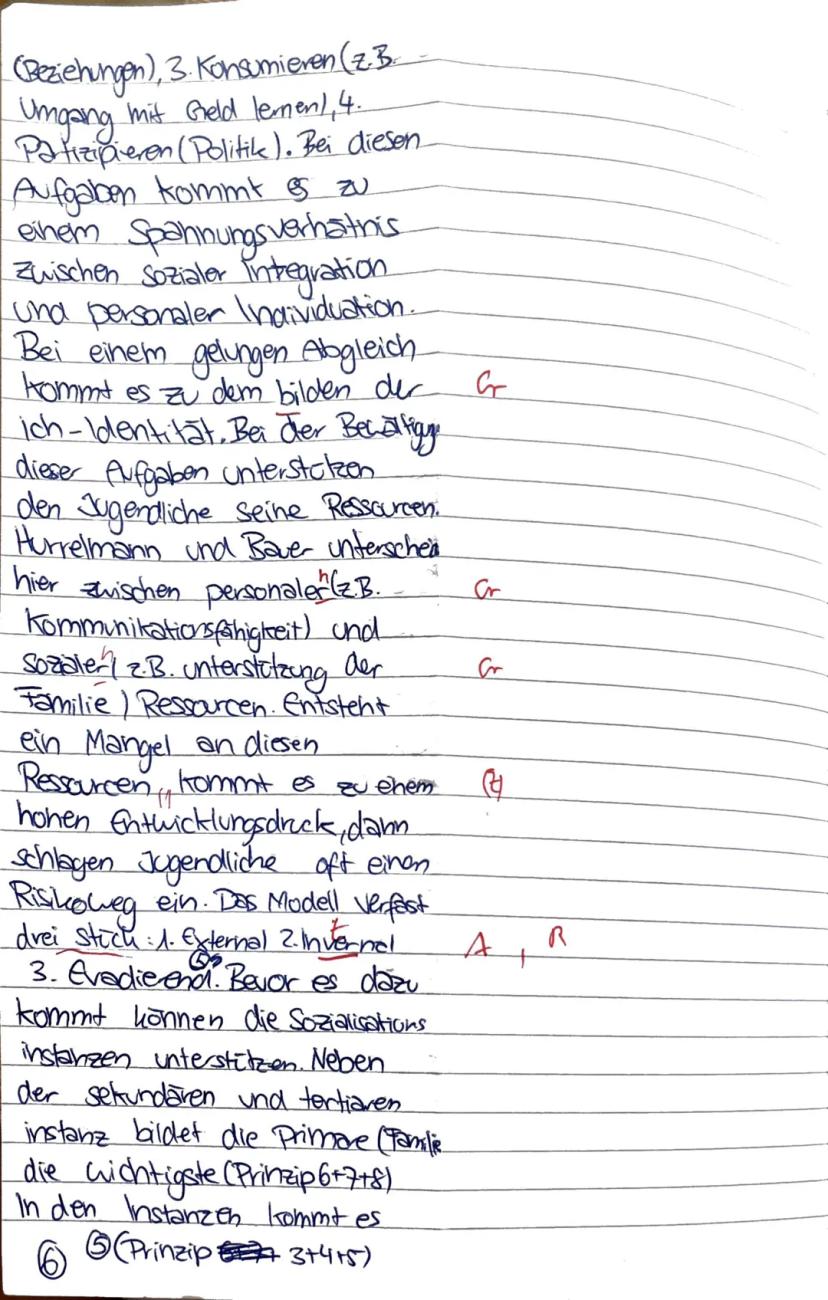 (Beziehungen), 3. Konsumieren (z.B.
Umgang mit Geld lernen), 4.
Patizipieren (Politik). Bei diesen
Aufgaben kommt es zu
einem Spannungsverhätnis
zwischen sozialer Integration
und personaler Individuation.
Bei einem gelungen Abgleich
kommt es zu dem bilden der Gr
ich-Identität. Bei der
dieser Aufgaben unterstützen
den Jugendliche seine Ressourcen.
Hurrelmann und Bauer
hier zwischen personaler n (z.B. Gr
Kommunikationsfähigkeit) und
sozialer n (z.B. unterstützung der Gr
Familie) Ressourcen. Entsteht
ein Mangel an diesen
Ressourcen, kommt es zu
hohen Entwicklungsdruck, dann
schlagen Jugendliche oft einen
Risikoweg ein. Das Modell verfast
drei Stück: 1. External 2. Internal A, R
3. Evadierend. ⑤ Bevor es dazu
kommt können die Sozialisations
instanzen unterstützen. Neben
der sekundären und tertiären
instanz bildet die Primäre (Familie
die wichtigste (Prinzip 6+7+8)
In den Instanzen kommt es
⑥ ⑤ (Prinzip 3+4+5)